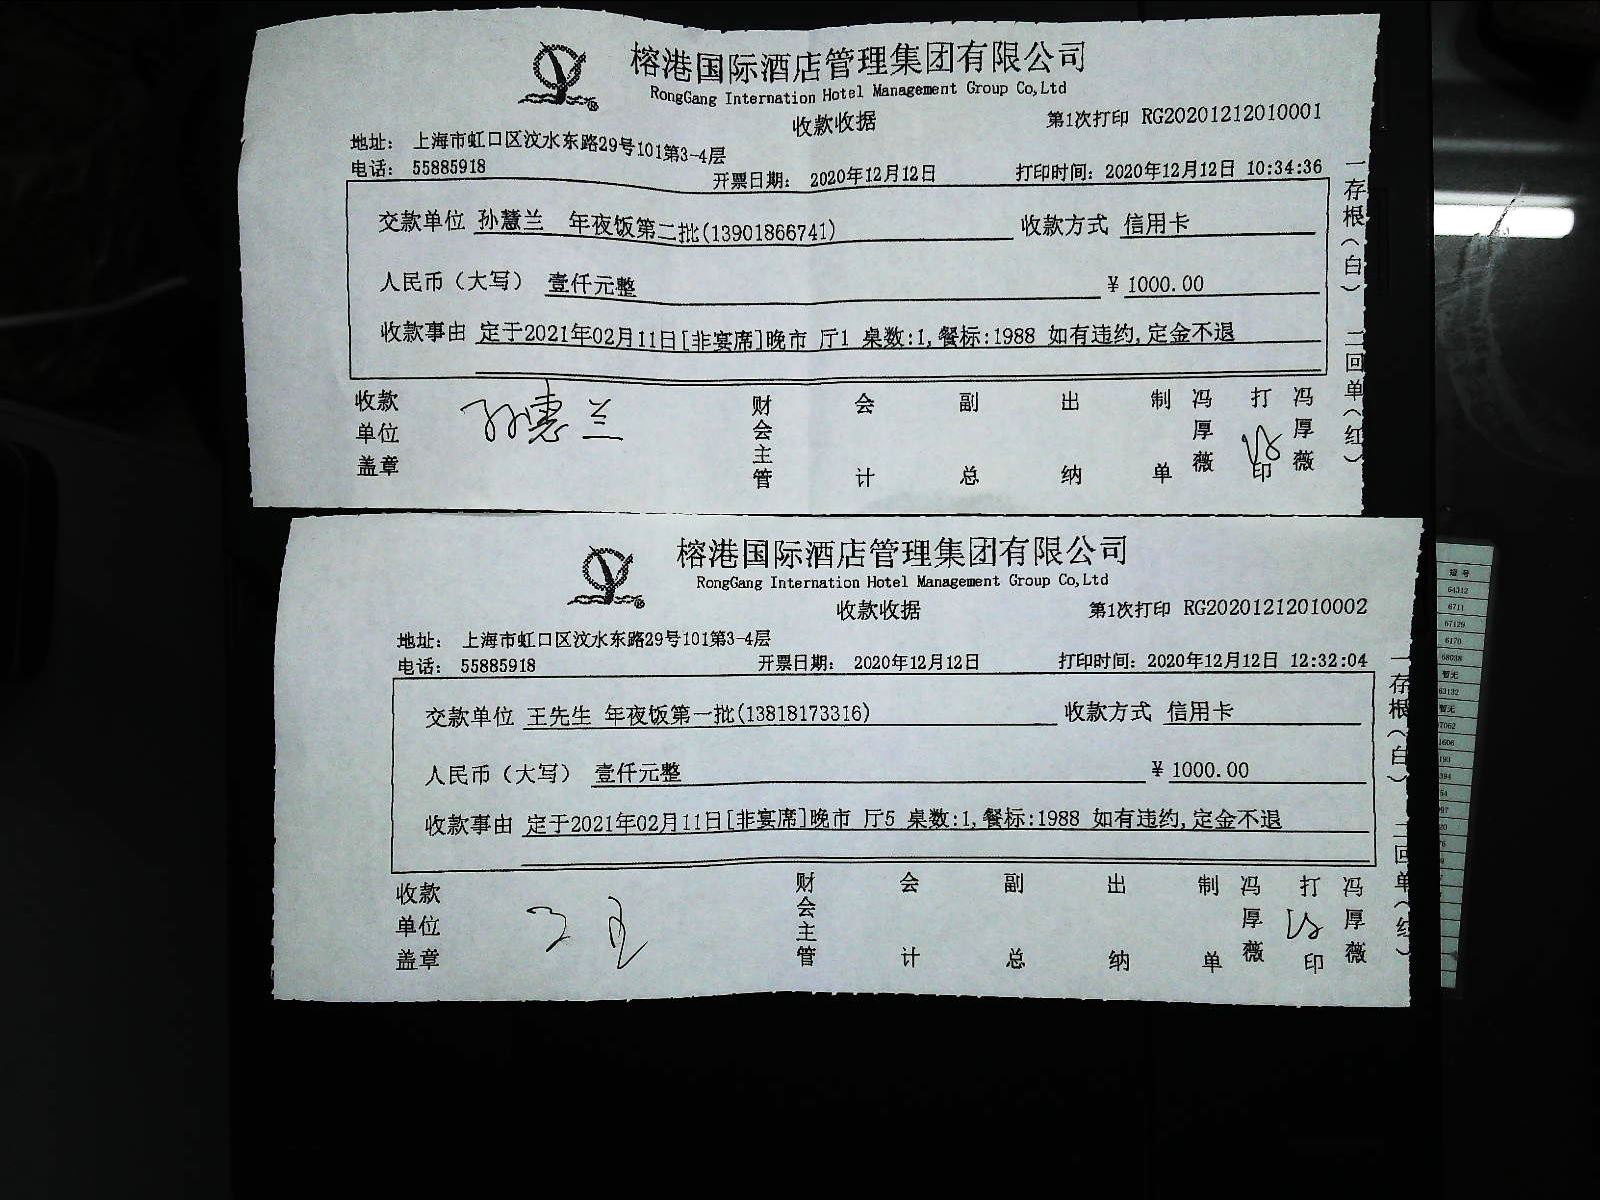 榕港国际酒店管理集团有限公司
RongGang Internation Hotel Management Group Co,Ltd
收款收据 第1次打印 RG20201212010001
地址: 上海市虹口区汶水东路29号101第3-4层
电话: 55885918 开票日期: 2020年12月12日 打印时间: 2020年12月12日 10:34:36
交款单位 孙慧兰 年夜饭第二批(13901866741) 收款方式 信用卡
人民币(大写) 壹仟元整 ¥ 1000.00
收款事由 定于2021年02月11日[非宴席]晚市 厅1 桌数:1,餐标:1988 如有违约,定金不退
收款单位盖章 孙惠兰 财会主管 会计 副总 出纳 制单 冯厚薇 打印 冯厚薇
一存根(白) 二回单(红)
榕港国际酒店管理集团有限公司
RongGang Internation Hotel Management Group Co,Ltd
收款收据 第1次打印 RG20201212010002
地址: 上海市虹口区汶水东路29号101第3-4层
电话: 55885918 开票日期: 2020年12月12日 打印时间: 2020年12月12日 12:32:04
交款单位 王先生 年夜饭第一批(13818173316) 收款方式 信用卡
人民币(大写) 壹仟元整 ¥ 1000.00
收款事由 定于2021年02月11日[非宴席]晚市 厅5 桌数:1,餐标:1988 如有违约,定金不退
收款单位盖章 财会主管 会计 副总 出纳 制单 冯厚薇 打印 冯厚薇
一存根(白) 二回单(红)
短号
64312
6711
67129
6170
68038
暂无
63132
暂无